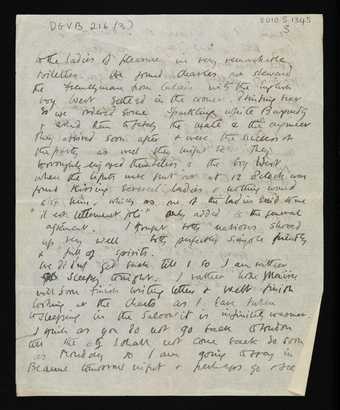 DGVB 216 (3)
2010.5.1345
3
& the ladies of pleasure in very remarkable
toilettes. We found Charles the steward
the Frenchman from Calais with the English
boy West seated in the corner drinking beer
so we ordered some sparkling white Burgundy
& asked them to fetch the mate & the engineer
They arrived soon after & were the success of
the party as well they might be. They
thoroughly enjoyed themselves & the boy West,
when the lights were put out at 12 o'clock was
found kissing several ladies & nothing would
stop him, which as one of the ladies said to me
"il est tellement joli" only added to the general
agreement. I thought both nations showed
up very well both perfectly simple friendly
& full of spirits.
We did not get back till 1 so I am rather
sleepy tonight. I rather hope Maurice
will soon finish writing letters & will finish
looking at the charts as I have taken
to sleeping in the Saloon it is infinitely warmer.
I think as you do not go back to London
till the I shall not come back so soon
as Monday so I am going to stay in
tomorrow night & perhaps go